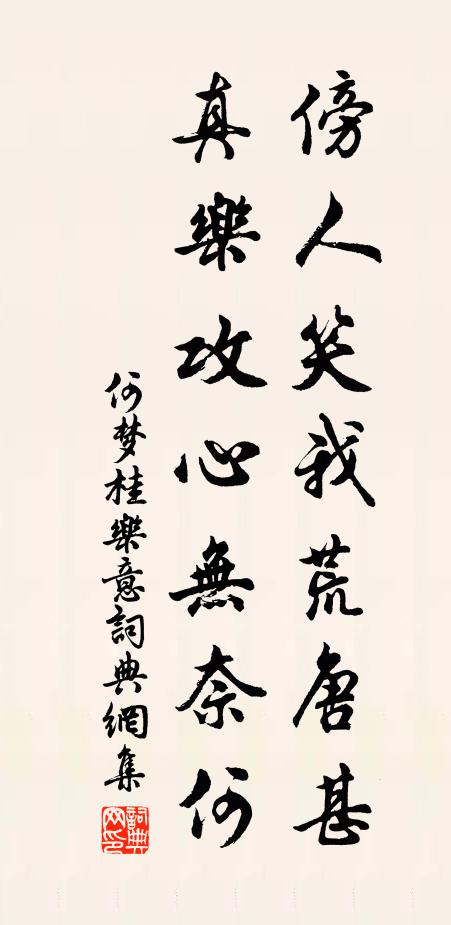 傍人笑我荒唐甚
真樂攻心無奈何
何梦桂樂意詞典網集
詞典
网印